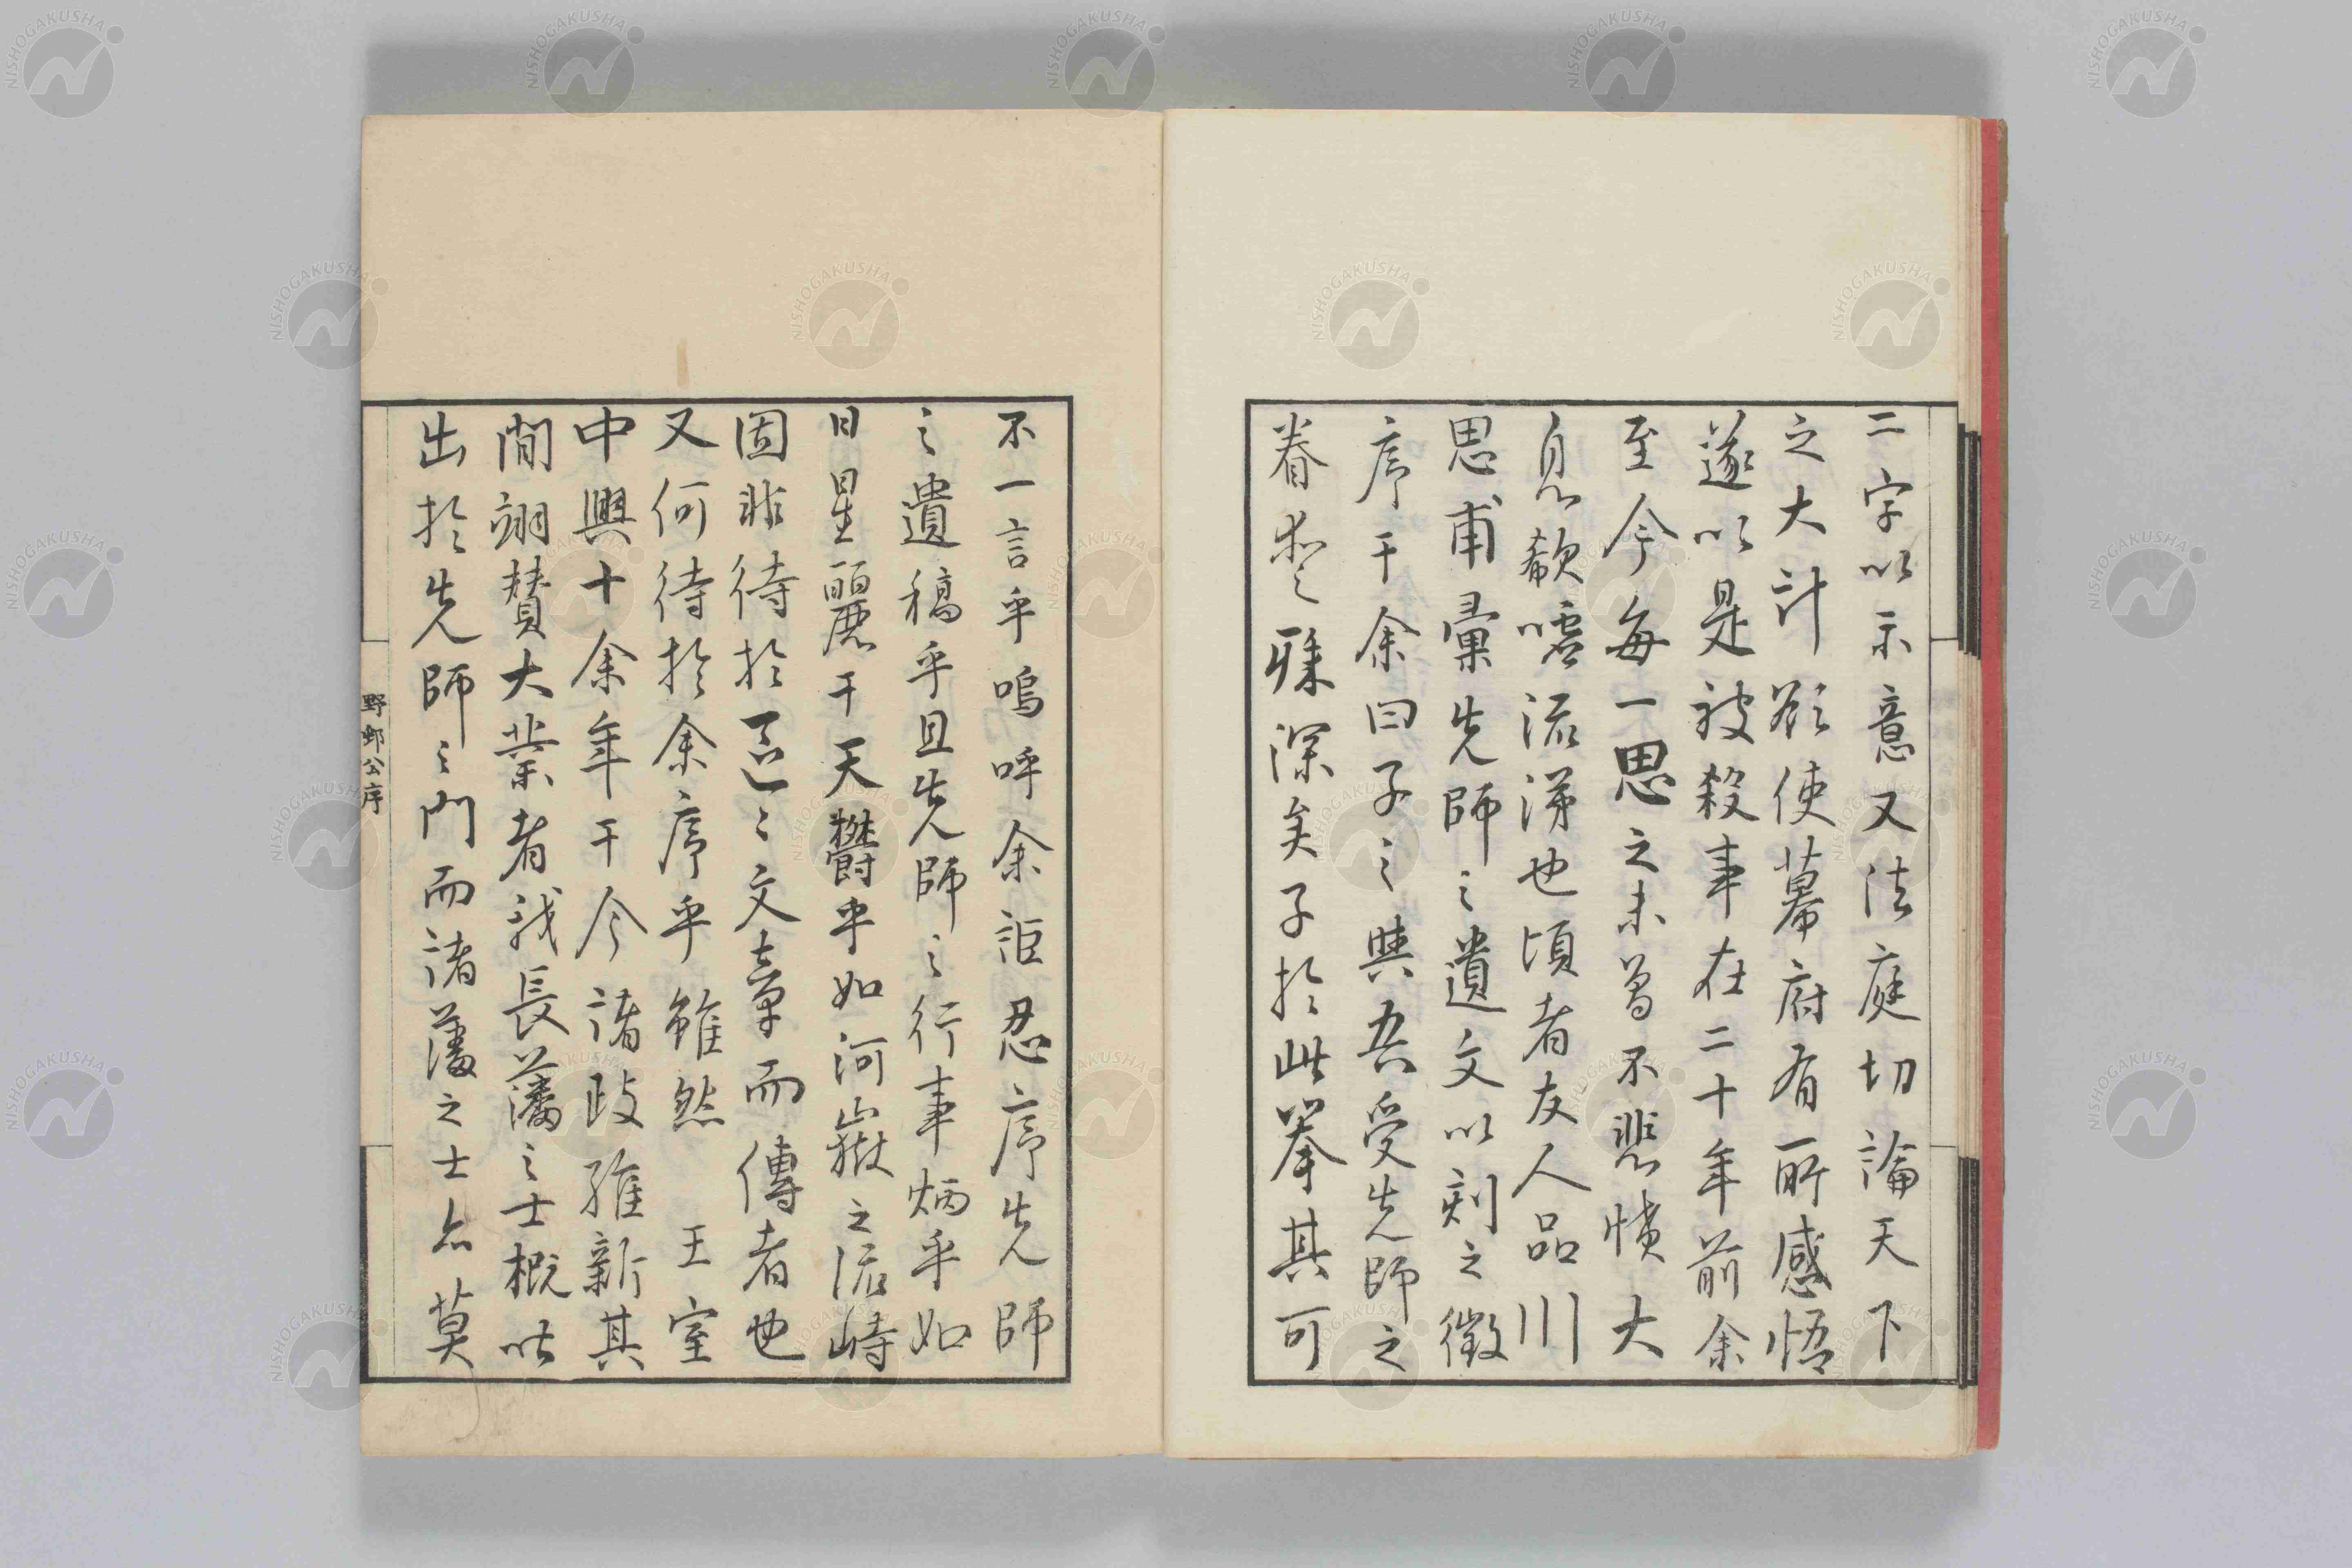 二字以示意又法庭切論天下
之大計欲使幕府有所感悟
遂以是被殺事在二十年前余
至今每一思之未曾不悲憤大
息欷噓流涕也頃者友人品川
思甫彙先師之遺文以刻之徵
序于余曰子之與吾受先師之
眷深矣子於此擧其可
不一言乎嗚呼余詎忍序先師
之遺稿乎且先師之行事炳乎如
日星麗于天鬱乎如河嶽之流峙
固非待於區〻文章而傳者也
又何待於余序乎雖然 王室
中興十余年于今諸政維新其
間翊賛大業者我長藩之士概皆
出於先師之門而諸藩之士亦莫
野邨公序
NISHOGAKUSHA